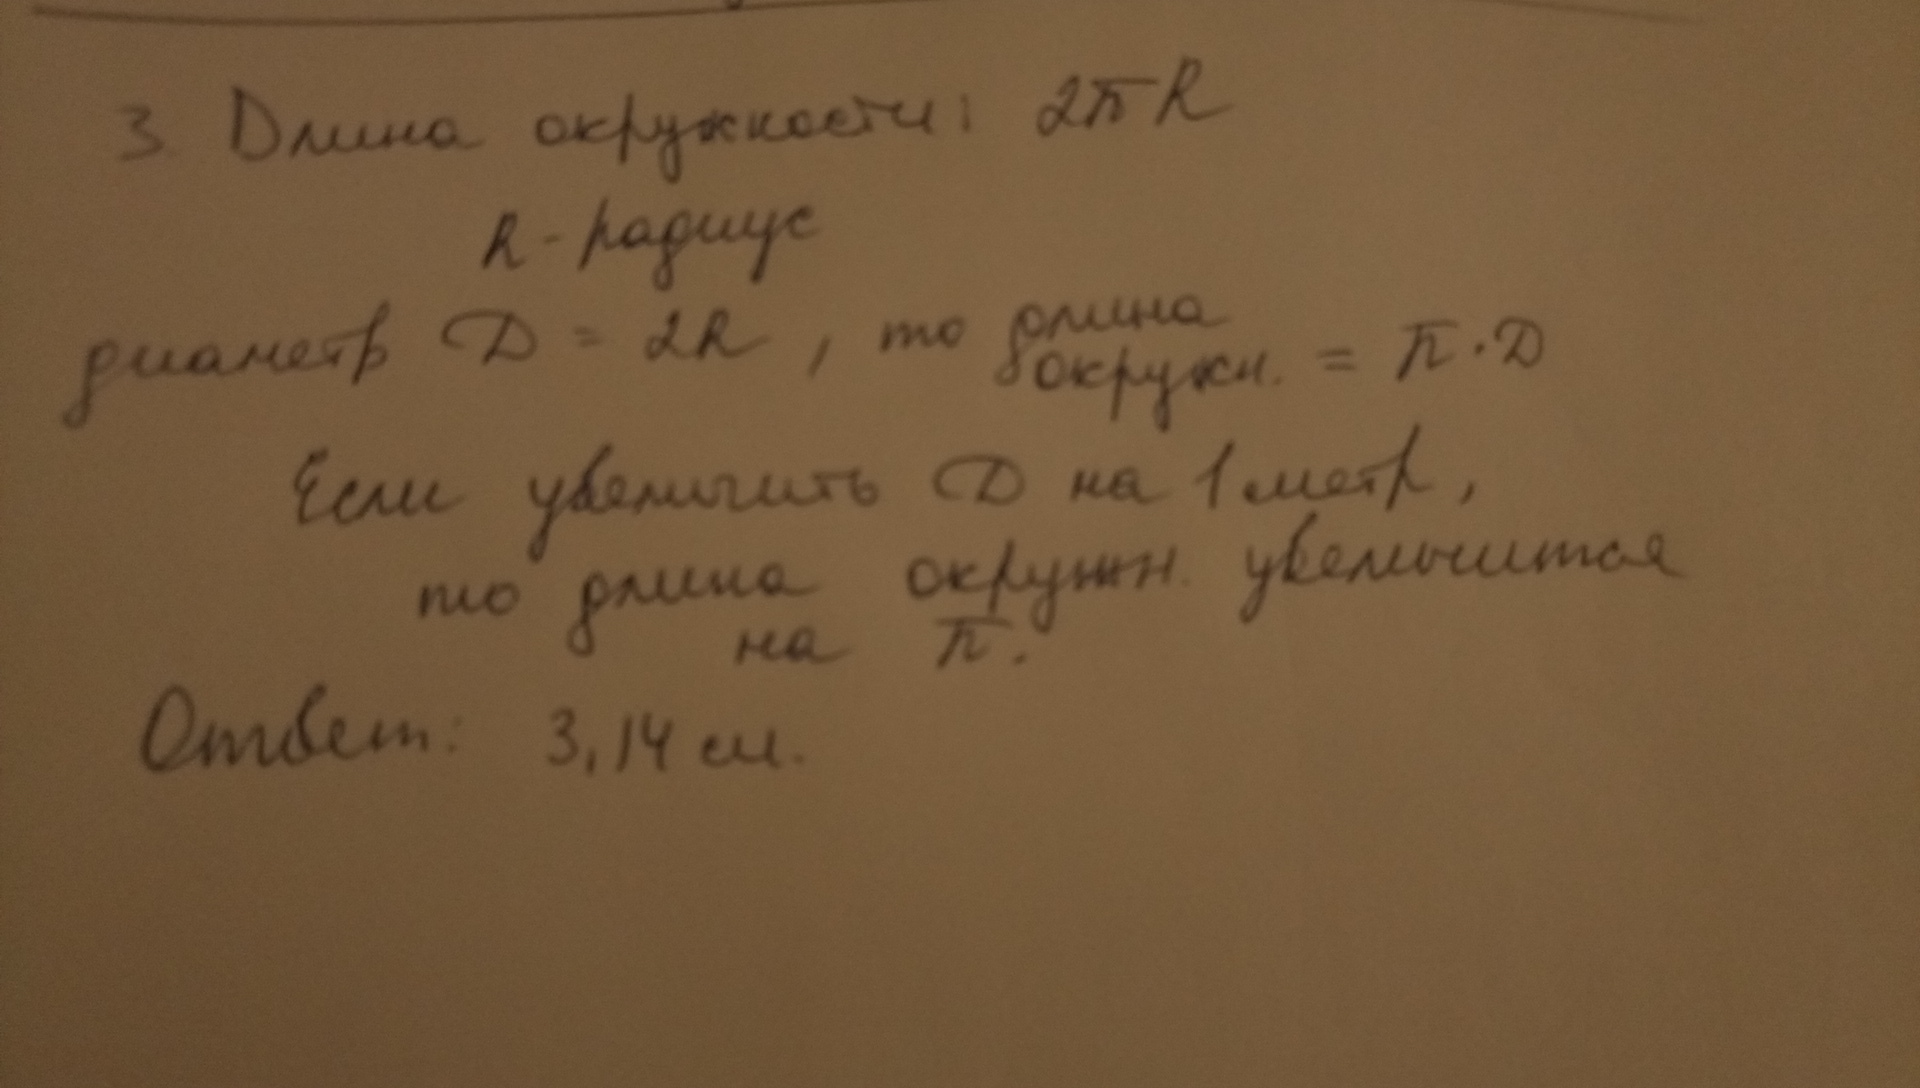 3. Длина окружности: 2πR
R - радиус
диаметр D = 2R, то длина окружн. = π · D
Если увеличить D на 1 метр,
то длина окружн. увеличится
на π.
Ответ: 3,14 см.